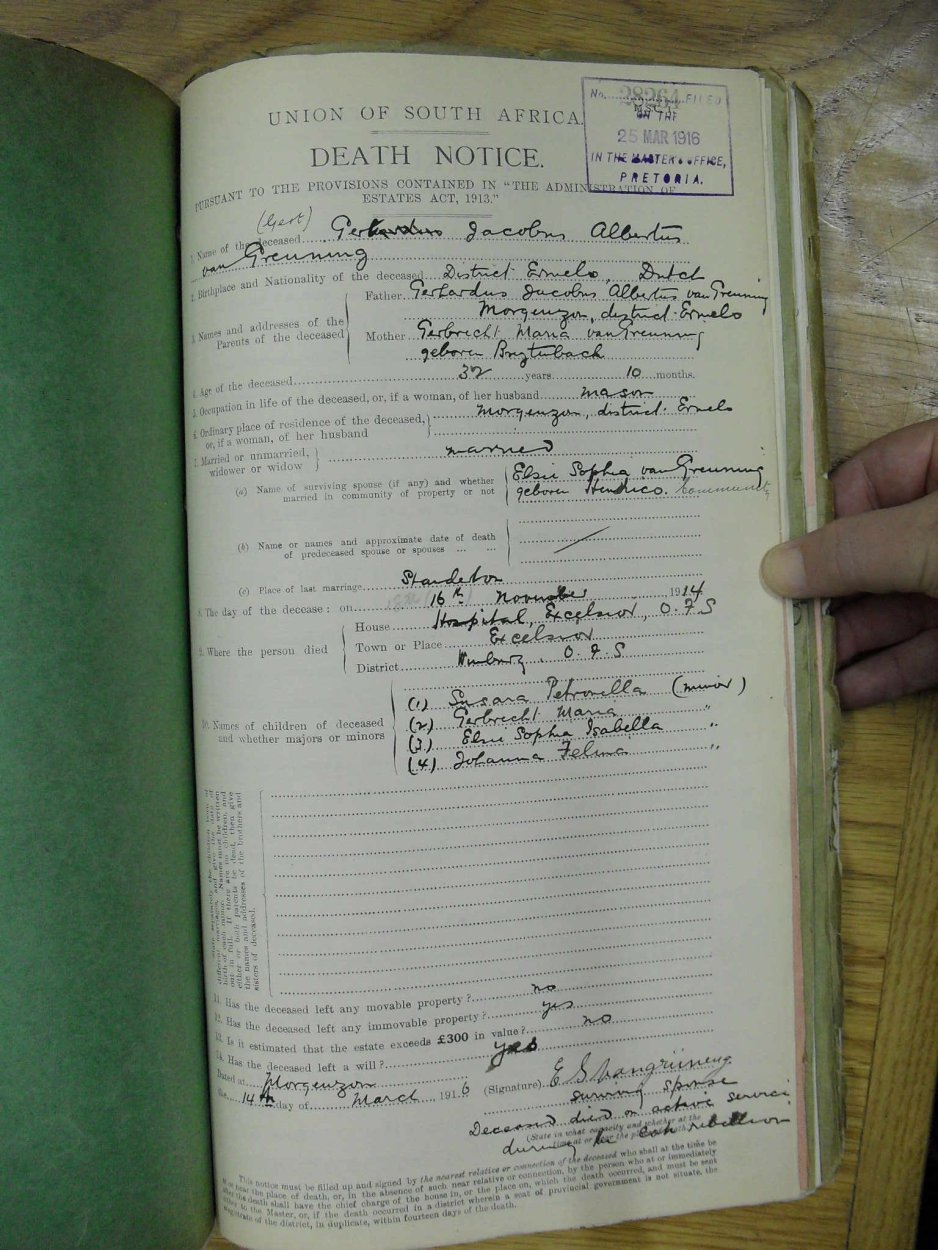 UNION OF SOUTH AFRICA.
No. 28264 FILED
ON THE
25 MAR 1916
IN THE MASTER'S OFFICE,
PRETORIA.
DEATH NOTICE.
PURSUANT TO THE PROVISIONS CONTAINED IN "THE ADMINISTRATION OF
ESTATES ACT, 1913."
(Gert)
1. Name of the deceased Gerhardus Jacobus Albertus
van Greuning
2. Birthplace and Nationality of the deceased District Ermelo, Dutch
3. Names and addresses of the Parents of the deceased
Father Gerhardus Jacobus Albertus van Greuning
Morgenzon, district Ermelo
Mother Gerbrecht Maria van Greuning
geboren
4. Age of the deceased 32 years 10 months.
5. Occupation in life of the deceased, or, if a woman, of her husband mason
6. Ordinary place of residence of the deceased, or, if a woman, of her husband Morgenzon, district Ermelo
7. Married or unmarried, widower or widow married
(a) Name of surviving spouse (if any) and whether married in community of property or not
Elsie Sophia van Greuning
geboren Community
(b) Name or names and approximate date of death of predeceased spouse or spouses ... ...
(c) Place of last marriage Standerton
8. The day of the decease: on 16th November 1914
9. Where the person died
House Hospital, Excelsior, O.F.S
Town or Place Excelsior
District Winburg, O.F.S
10. Names of children of deceased and whether majors or minors
(1) Susara Petronella (minor)
(2) Gerbrecht Maria "
(3) Elsie Sophia Isabella "
(4) Johanna "
different marriages, and give the date of
birth of each minor. Names must be written
out in full. If there are no children, and
either or both parents be dead, then give
the names and addresses of the brothers and
sisters of deceased.
11. Has the deceased left any movable property? no
12. Has the deceased left any immovable property? yes
13. Is it estimated that the estate exceeds £300 in value? no
14. Has the deceased left a will? yes
Dated at Morgenzon
the 14th day of March 1916
(Signature)
surviving spouse
Deceased died on active service
(State in what capacity and whether at the
time at or near the place of death.)
during the rebellion
This notice must be filled up and signed by the nearest relative or connection of the deceased who shall at the time be
at or near the place of death, or, in the absence of such near relative or connection, by the person who at or immediately
after the death shall have the chief charge of the house in, or the place on, which the death occurred, and must be sent
either to the Master, or, if the death occurred in a district wherein a seat of provincial government is not situate, the
Magistrate of the district, in duplicate, within fourteen days of the death.